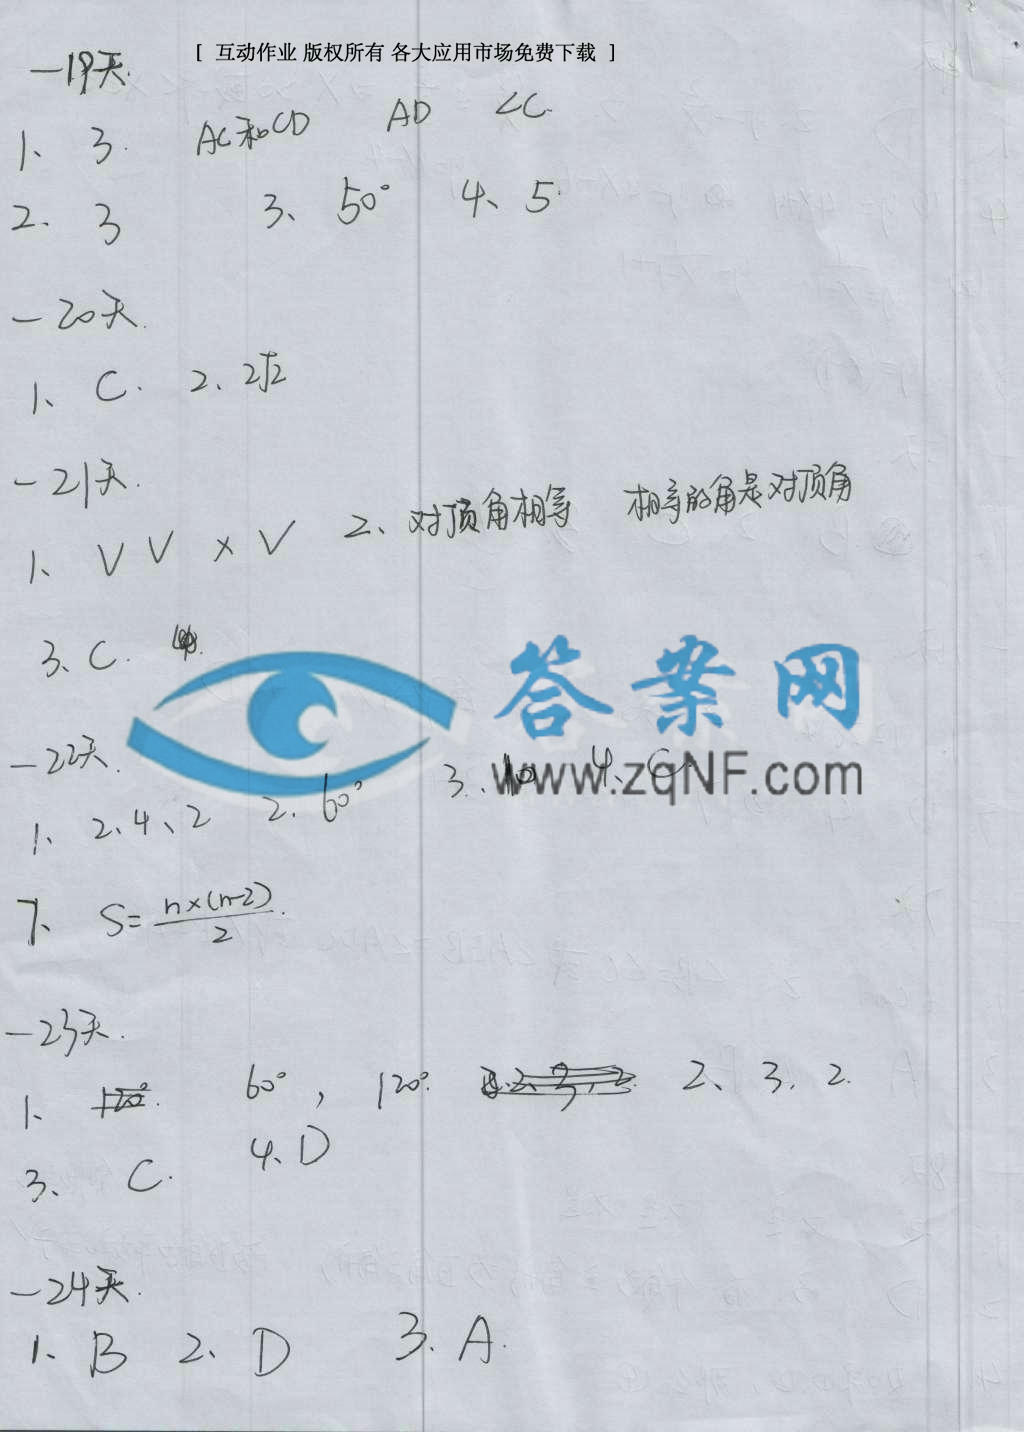 [ 互动作业 版权所有 各大应用市场免费下载 ]
一19天.
1、 3. AC和CD AD ∠C.
2、 3 3、 50° 4、 5.
一20天.
1、 C. 2、 2√2
一21天.
1、 V V × V 2、对顶角相等 相等的角是对顶角
3、C.
答案网
一22天.
www.zqNF.com
1、 2、4、2 2、60° 3、10 4、C
7、 S=n×(n-2)/2.
一23天.
1、 60°, 120°. 2、3.2.
3、 C. 4、D
一24天.
1、B 2、D 3、A.